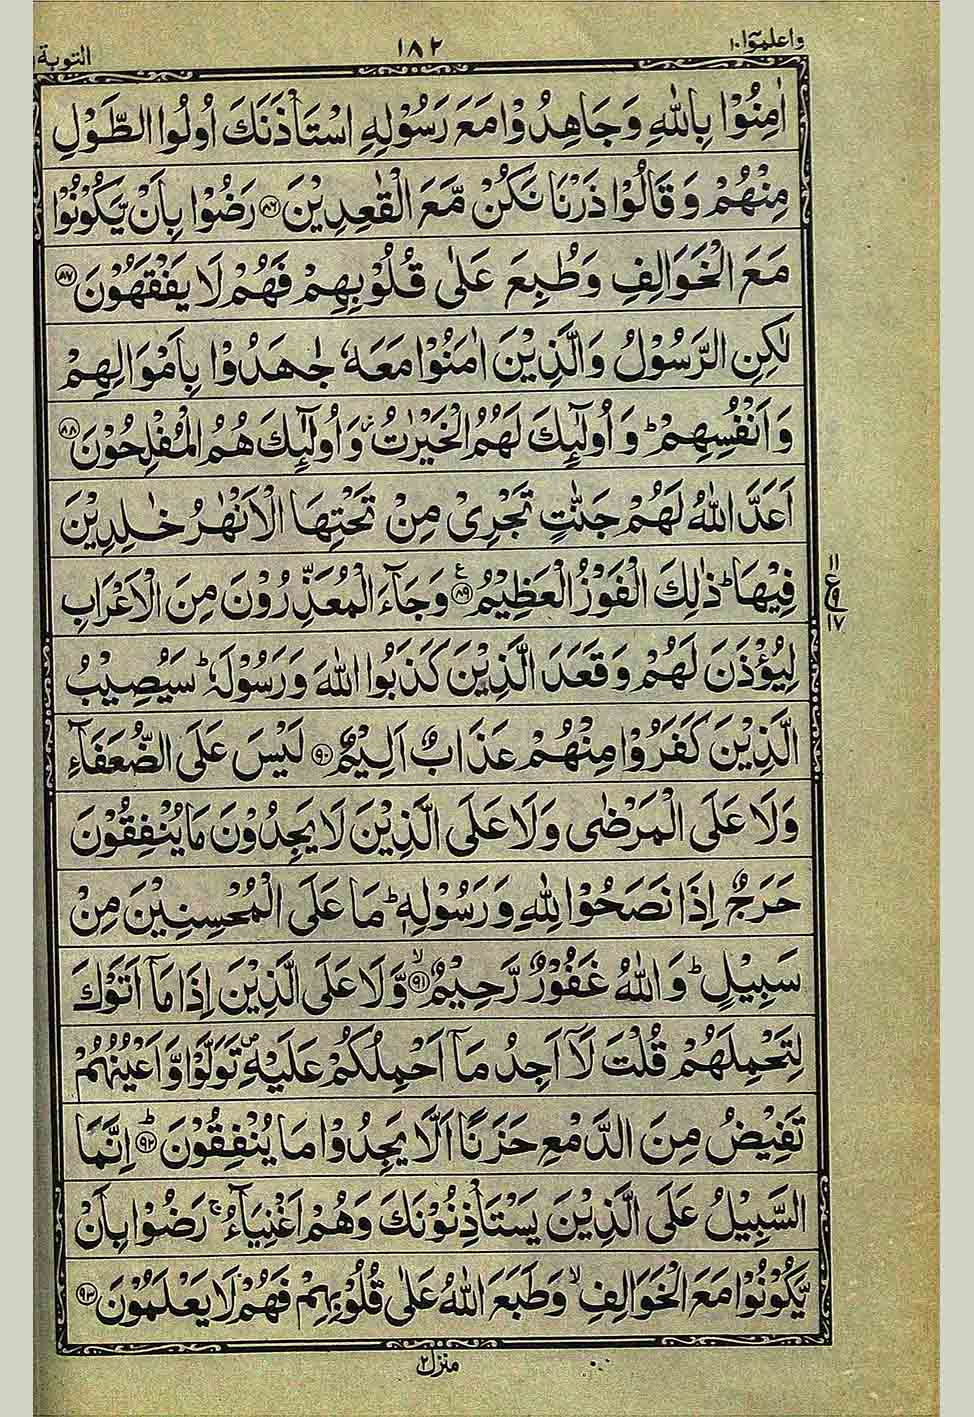 واعلموۤا ۱۰
۱۸۲
التوبة ۹
اٰمِنُوْا بِاللّٰهِ وَجَاهِدُوْا مَعَ رَسُوْلِهِ اسْتَاْذَنَكَ اُولُوا الطَّوْلِ
مِنْهُمْ وَقَالُوْا ذَرْنَا نَكُنْ مَّعَ الْقٰعِدِيْنَ ﴿۸۶﴾ رَضُوْا بِاَنْ يَّكُوْنُوْا
مَعَ الْخَوَالِفِ وَطُبِعَ عَلٰى قُلُوْبِهِمْ فَهُمْ لَا يَفْقَهُوْنَ ﴿۸۷﴾
لٰكِنِ الرَّسُوْلُ وَالَّذِيْنَ اٰمَنُوْا مَعَهٗ جٰهَدُوْا بِاَمْوَالِهِمْ
وَاَنْفُسِهِمْ ؕ وَاُولٰٓئِكَ لَهُمُ الْخَيْرٰتُ ۫ وَاُولٰٓئِكَ هُمُ الْمُفْلِحُوْنَ ﴿۸۸﴾
اَعَدَّ اللّٰهُ لَهُمْ جَنّٰتٍ تَجْرِيْ مِنْ تَحْتِهَا الْاَنْهٰرُ خٰلِدِيْنَ
فِيْهَا ؕ ذٰلِكَ الْفَوْزُ الْعَظِيْمُ ﴿۸۹﴾ ع وَجَآءَ الْمُعَذِّرُوْنَ مِنَ الْاَعْرَابِ
۱۱ ع ۹ ۱۷
لِيُؤْذَنَ لَهُمْ وَقَعَدَ الَّذِيْنَ كَذَبُوا اللّٰهَ وَرَسُوْلَهٗ ؕ سَيُصِيْبُ
الَّذِيْنَ كَفَرُوْا مِنْهُمْ عَذَابٌ اَلِيْمٌ ﴿۹۰﴾ لَيْسَ عَلَى الضُّعَفَآءِ
وَلَا عَلَى الْمَرْضٰى وَلَا عَلَى الَّذِيْنَ لَا يَجِدُوْنَ مَا يُنْفِقُوْنَ
حَرَجٌ اِذَا نَصَحُوْا لِلّٰهِ وَرَسُوْلِهٖ ؕ مَا عَلَى الْمُحْسِنِيْنَ مِنْ
سَبِيْلٍ ؕ وَاللّٰهُ غَفُوْرٌ رَّحِيْمٌ ﴿۹۱﴾ ۙ وَّلَا عَلَى الَّذِيْنَ اِذَا مَاۤ اَتَوْكَ
لِتَحْمِلَهُمْ قُلْتَ لَاۤ اَجِدُ مَاۤ اَحْمِلُكُمْ عَلَيْهِ ۪ تَوَلَّوْا وَّاَعْيُنُهُمْ
تَفِيْضُ مِنَ الدَّمْعِ حَزَنًا اَلَّا يَجِدُوْا مَا يُنْفِقُوْنَ ﴿۹۲﴾ ؕ اِنَّمَا
السَّبِيْلُ عَلَى الَّذِيْنَ يَسْتَاْذِنُوْنَكَ وَهُمْ اَغْنِيَآءُ ۚ رَضُوْا بِاَنْ
يَّكُوْنُوْا مَعَ الْخَوَالِفِ ۙ وَطَبَعَ اللّٰهُ عَلٰى قُلُوْبِهِمْ فَهُمْ لَا يَعْلَمُوْنَ ﴿۹۳﴾
منزل ۲